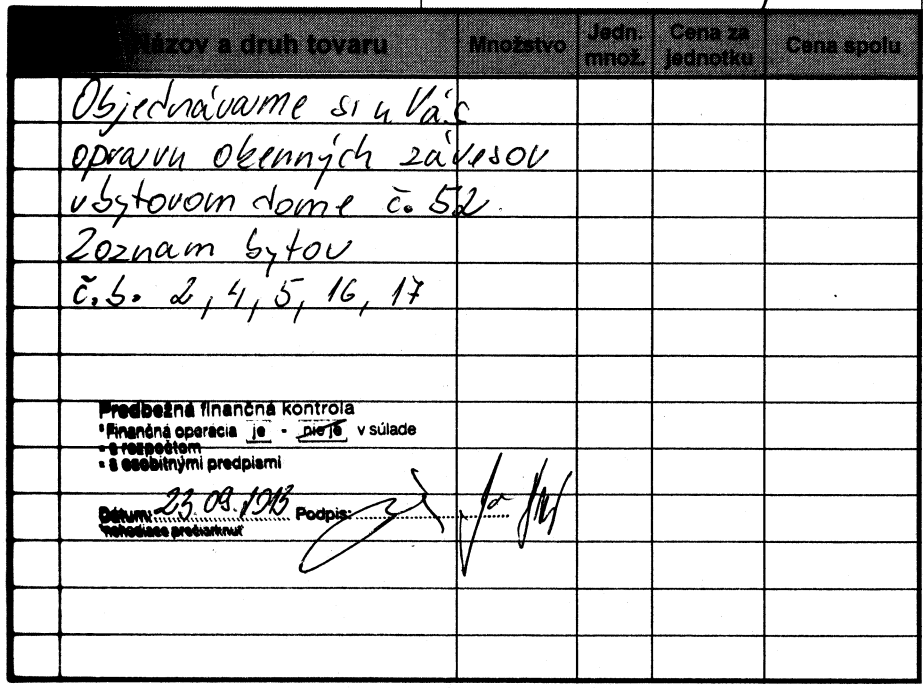 Názov a druh tovaru Množstvo Jedn. množ. Cena za jednotku Cena spolu
Objednávame si u Vás
opravu okenných závesov
v bytovom dome č. 52.
Zoznam bytov
č.b. 2, 4, 5, 16, 17
Predbežná finančná kontrola
*Finančná operácia je - nie je v súlade
- s rozpočtom
- s osobitnými predpismi
Dátum: 23.09. Podpis:
*nehodiace prečiarknuť